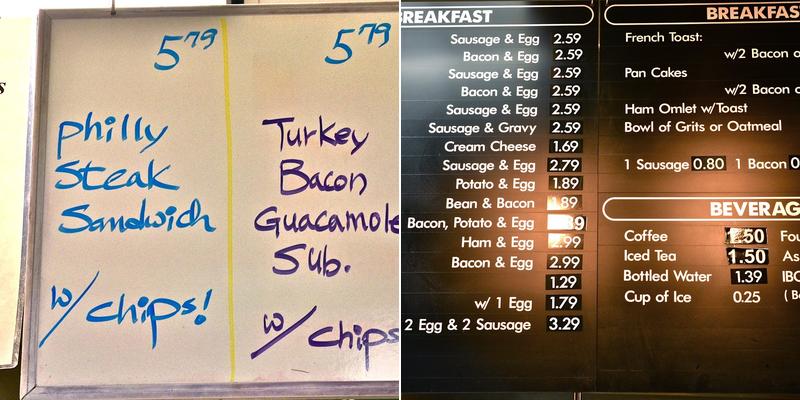 5.79
philly
Steak
Sandwich
w/ chips!
5.79
Turkey
Bacon
Guacamole
Sub.
w/ chips
BREAKFAST
Sausage & Egg 2.59
Bacon & Egg 2.59
Sausage & Egg 2.59
Bacon & Egg 2.59
Sausage & Egg 2.59
Sausage & Gravy 2.59
Cream Cheese 1.69
Sausage & Egg 2.79
Potato & Egg 1.89
Bean & Bacon .89
Bacon, Potato & Egg
Ham & Egg 2.99
Bacon & Egg 2.99
1.29
w/ 1 Egg 1.79
2 Egg & 2 Sausage 3.29
BREAKFAS
French Toast:
w/2 Bacon o
Pan Cakes
w/2 Bacon o
Ham Omlet w/Toast
Bowl of Grits or Oatmeal
1 Sausage 0.80 1 Bacon 0
BEVERAG
Coffee 1.50 Fou
Iced Tea 1.50 As
Bottled Water 1.39 IBC
Cup of Ice 0.25 ( Bo